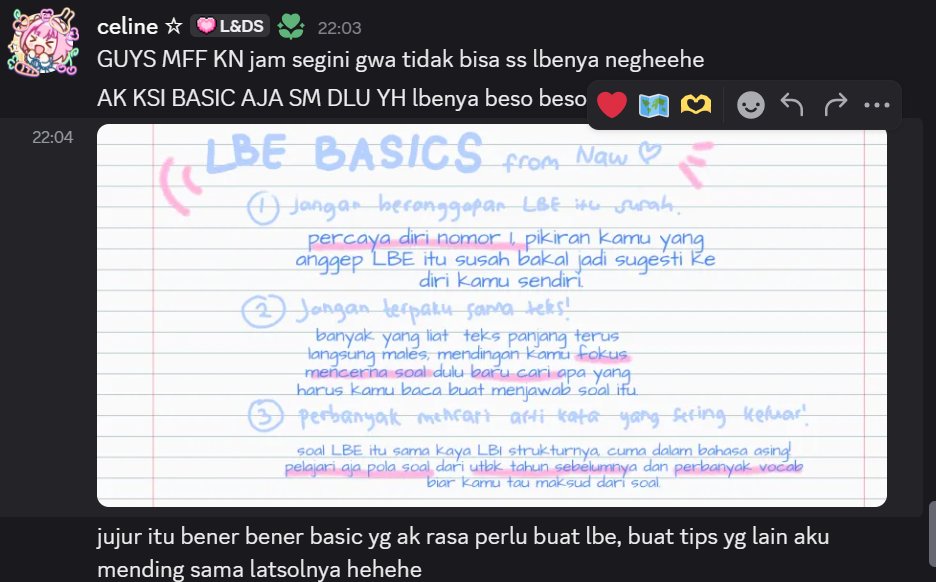 celine ☆ L&DS 22:03
GUYS MFF KN jam segini gwa tidak bisa ss lbenya negheehe
AK KSI BASIC AJA SM DLU YH lbenya beso beso
22:04
LBE BASICS from Naw ♡
1 Jangan beranggapan LBE itu surah.
percaya diri nomor 1, pikiran kamu yang
anggep LBE itu susah bakal jadi sugesti ke
diri kamu sendiri.
2 Jangan terpaku sama teks!
banyak yang liat teks panjang terus
langsung males, mendingan kamu fokus
mencerna soal dulu baru cari apa yang
harus kamu baca buat menjawab soal itu.
3 perbanyak mencari arti kata yang sering keluar!
soal LBE itu sama kaya LBI strukturnya, cuma dalam bahasa asing!
pelajari aja pola soal dari utbk tahun sebelumnya dan perbanyak vocab
biar kamu tau maksud dari soal
jujur itu bener bener basic yg ak rasa perlu buat lbe, buat tips yg lain aku
mending sama latsolnya hehehe